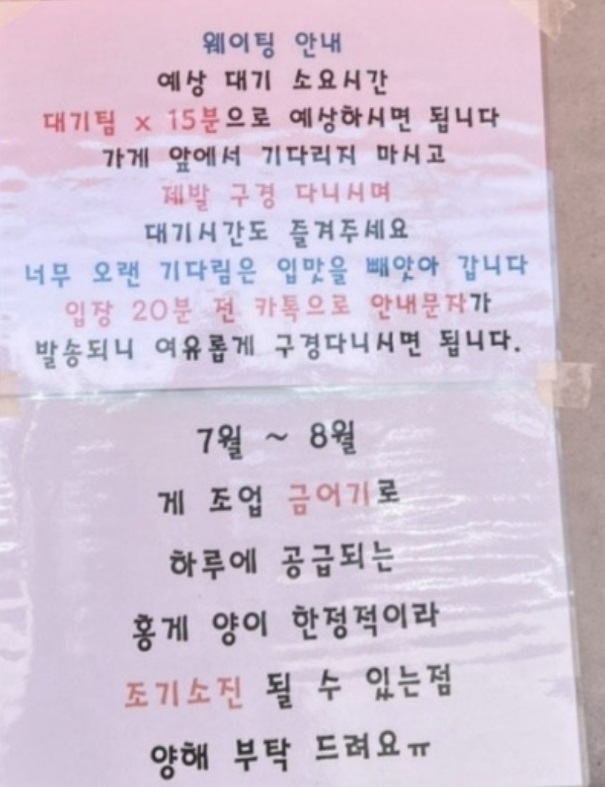 웨이팅 안내
예상 대기 소요시간
대기팀 x 15분으로 예상하시면 됩니다
가게 앞에서 기다리지 마시고
제발 구경 다니시며
대기시간도 즐겨주세요
너무 오랜 기다림은 입맛을 빼앗아 갑니다
입장 20분 전 카톡으로 안내문자가
발송되니 여유롭게 구경다니시면 됩니다.
7월 ~ 8월
게 조업 금어기로
하루에 공급되는
홍게 양이 한정적이라
조기소진 될 수 있는점
양해 부탁 드려요ㅠ